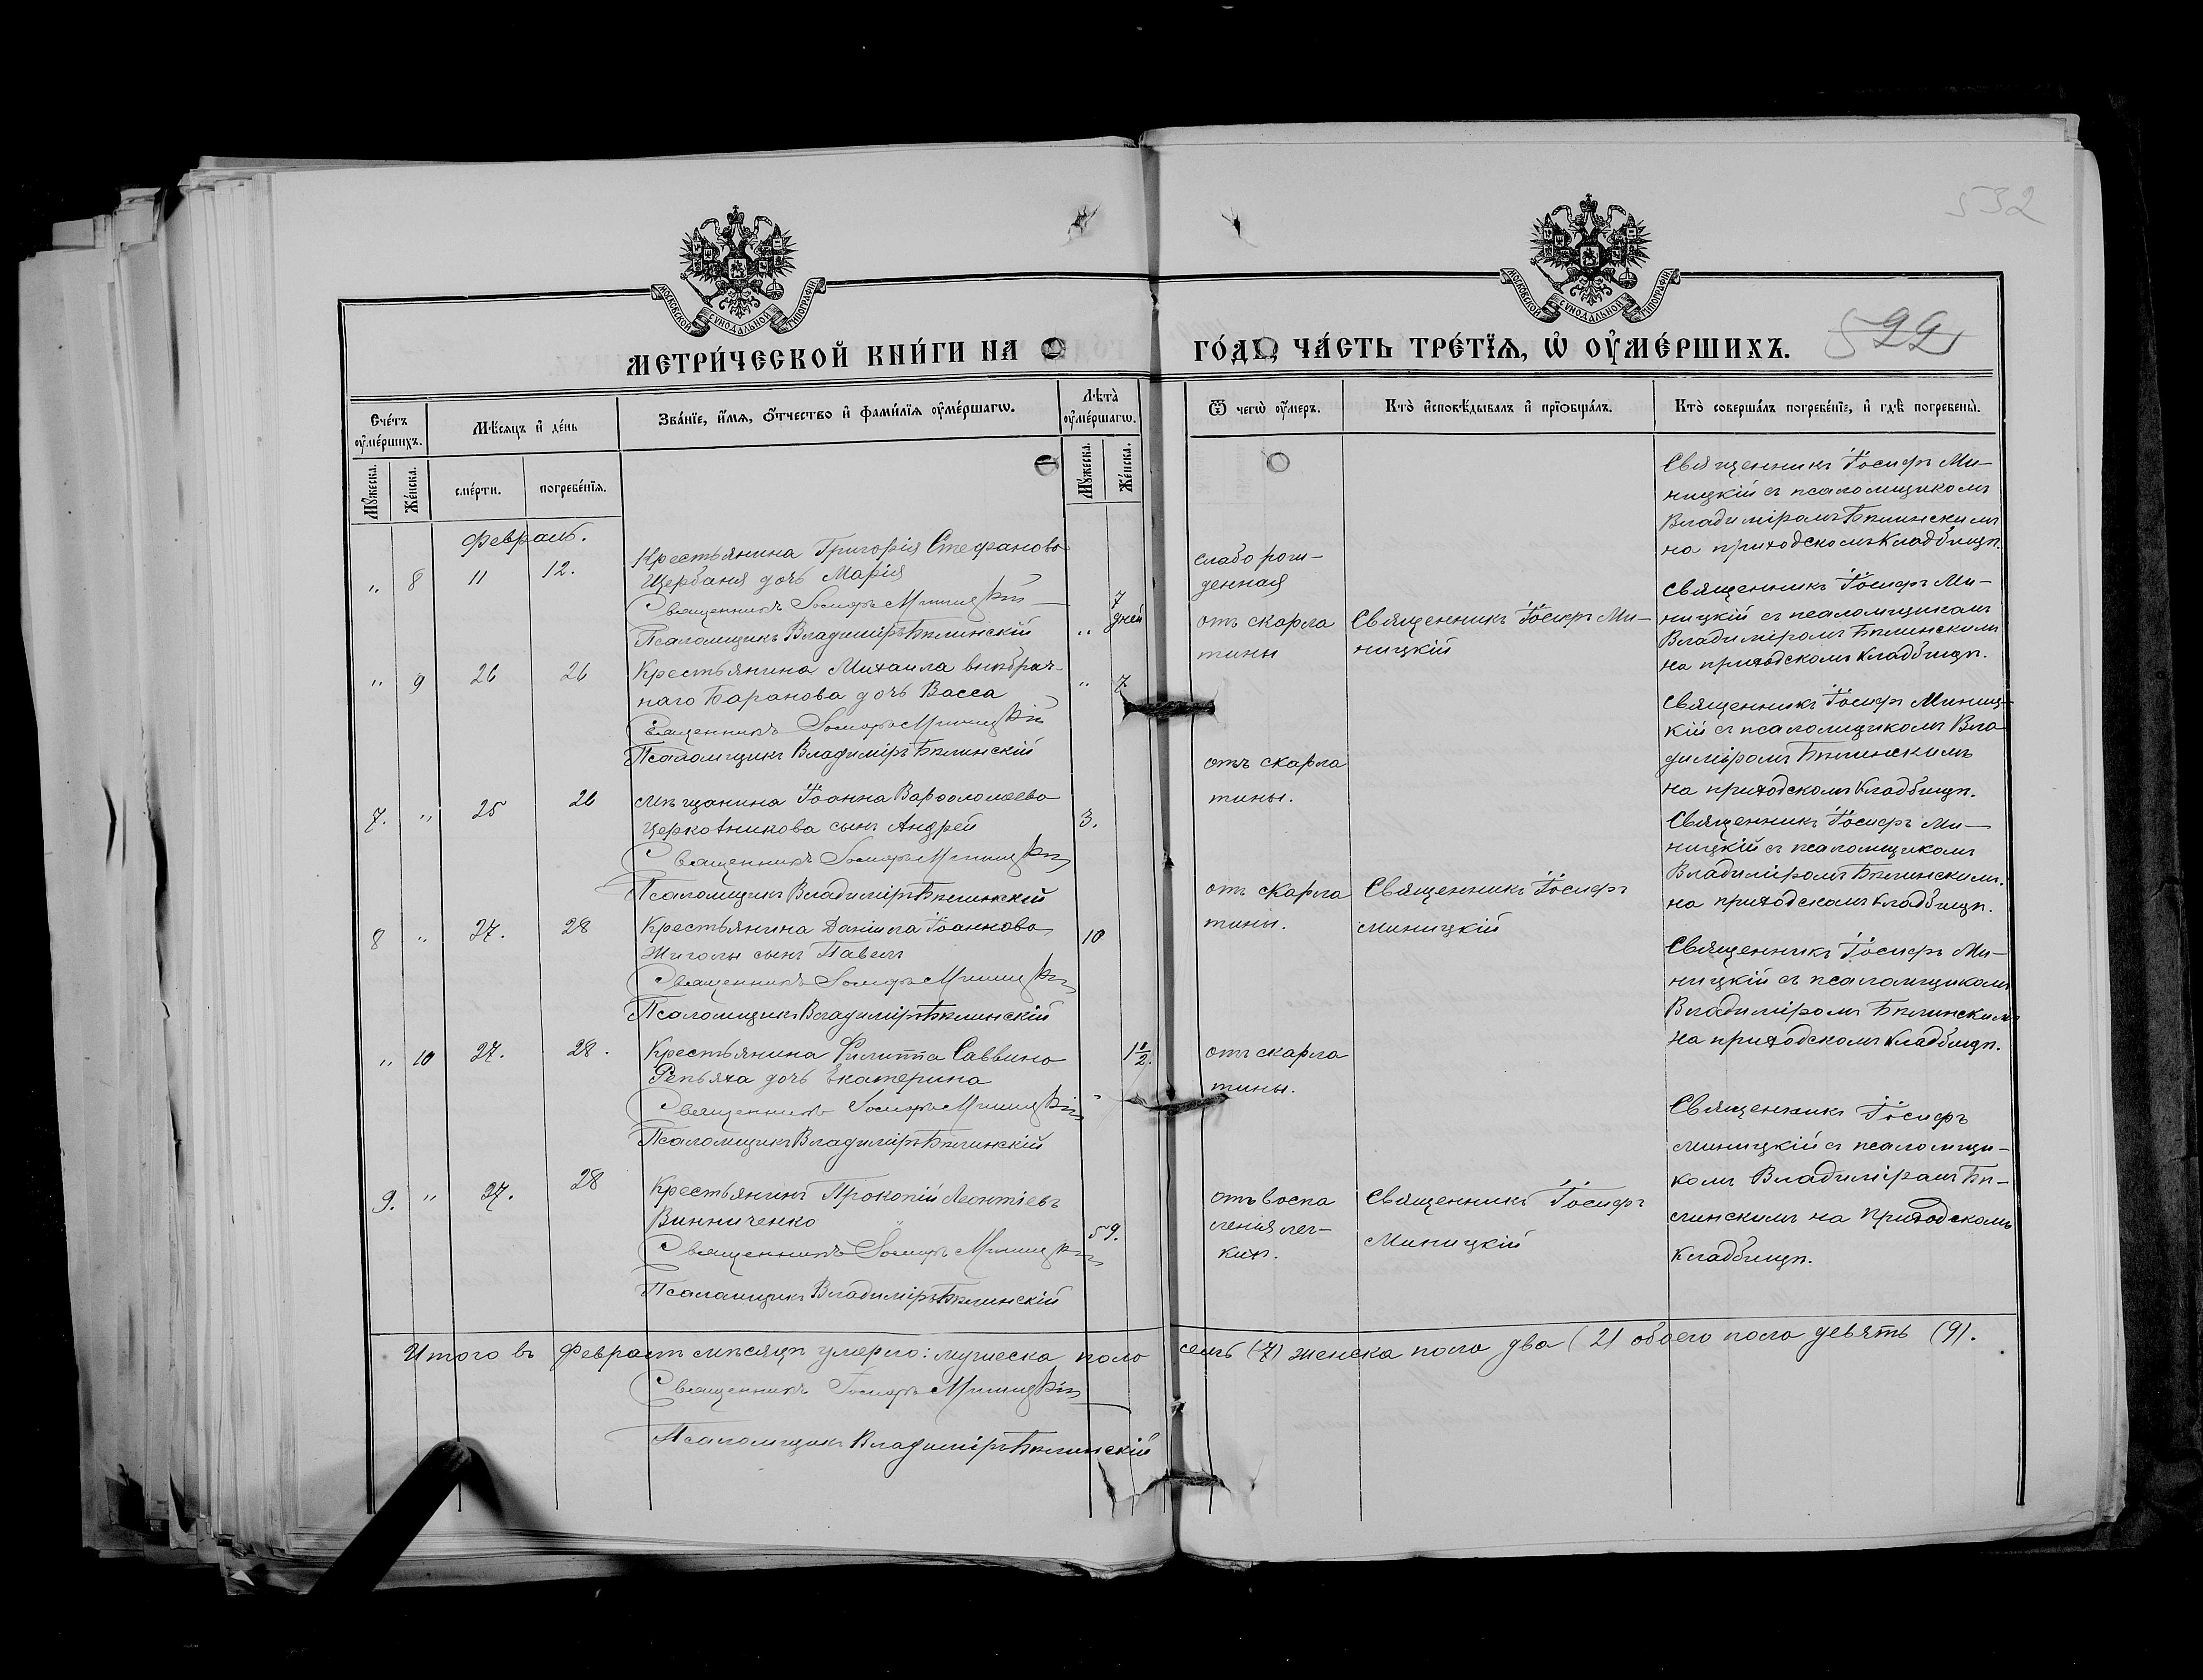 532
МОСКОВСКОЙ СУНОДАЛЬНОЙ ТИПОГРАФІИ
МОСКОВСКОЙ СУНОДАЛЬНОЙ ТИПОГРАФІИ
МЕТРИ́ЧЕСКОЙ КНИ́ГИ НА
ГО́ДЪ, ЧА́СТЬ ТРЕ́ТЇѦ, Ѡ҆ ОУ҆МЕ́РШИХЪ.
522
Сче́тъ оу҆ме́ршихъ.
Мѣ́сяцъ и҆ де́нь
Зва́нїе, и҆́мя, ѻ҆́тчество и҆ фами́лїя оу҆ме́ршагѡ.
Лѣ́та оу҆ме́ршагѡ.
Ѿ чегѡ̀ оу҆́меръ.
Кто̀ и҆сповѣ́дывалъ и҆ прїѡбща́лъ.
Кто̀ соверша́лъ погребе́нїе, и҆ гдѣ̀ погребены̀.
Мꙋ́жеска.
Же́нска.
сме́рти.
погребе́нїя.
Мꙋ́жеска.
Же́нска.
Февраль.
„ 8 11 12.
Крестьянина Григорія Стефанова
Щербаня дочь Марія
Священникъ Іосифъ Миницкій
Псаломщикъ Владиміръ Бѣлинскій
„ 7 дней
слабо рож-
денная
Священникъ Іосифъ Ми-
ницкій съ псаломщикомъ
Владиміромъ Бѣлинскимъ
на приходскомъ кладбищѣ.
„ 9 26 26
Крестьянина Михаила внѣбрач-
наго Баранова дочь Васса
Священникъ Іосифъ Миницкій
Псаломщикъ Владиміръ Бѣлинскій
„ 7
отъ скарла
тины
Священникъ Іосифъ Ми-
ницкій
Священникъ Іосифъ Ми-
ницкій съ псаломщикомъ
Владиміромъ Бѣлинскимъ
на приходскомъ кладбищѣ.
7. „ 25 26
Мѣщанина Іоанна Варѳоломеева
Церковникова сынъ Андрей
Священникъ Іосифъ Миницкій
Псаломщикъ Владиміръ Бѣлинскій
3.
отъ скарла
тины.
Священникъ Іосифъ Миниц-
кій съ псаломщикомъ Вла-
диміромъ Бѣлинскимъ
на приходскомъ кладбищѣ.
8 „ 27. 28
Крестьянина Даніила Іоаннова
Жиголы сынъ Павелъ
Священникъ Іосифъ Миницкій
Псаломщикъ Владиміръ Бѣлинскій
10
отъ скарла
тины.
Священникъ Іосифъ
Миницкій
Священникъ Іосифъ Ми-
ницкій съ псаломщикомъ
Владиміромъ Бѣлинскимъ.
на приходскомъ кладбищѣ.
„ 10 27. 28.
Крестьянина Филиппа Саввина
Репьяха дочь Екатерина
Священникъ Іосифъ Миницкій
Псаломщикъ Владиміръ Бѣлинскій
„ 1½.
отъ скарла
тины.
Священникъ Іосифъ Ми-
ницкій съ псаломщикомъ
Владиміромъ Бѣлинскимъ
на приходскомъ кладбищѣ.
9. „ 27. 28
Крестьянинъ Прокопій Леонтіевъ
Винниченко
Священникъ Іосифъ Миницкій
Псаломщикъ Владиміръ Бѣлинскій
59.
отъ воспа
ленія лег-
кихъ.
Священникъ Іосифъ
Миницкій
Священникъ Іосифъ
Миницкій съ псаломщи-
комъ Владиміромъ Бѣ-
линскимъ на приходскомъ
кладбищѣ.
Итого въ Февралѣ мѣсяцѣ умерло: мужеска пола семь (7) женска пола два (2) обоего пола девять (9).
Священникъ Іосифъ Миницкій
Псаломщикъ Владиміръ Бѣлинскій